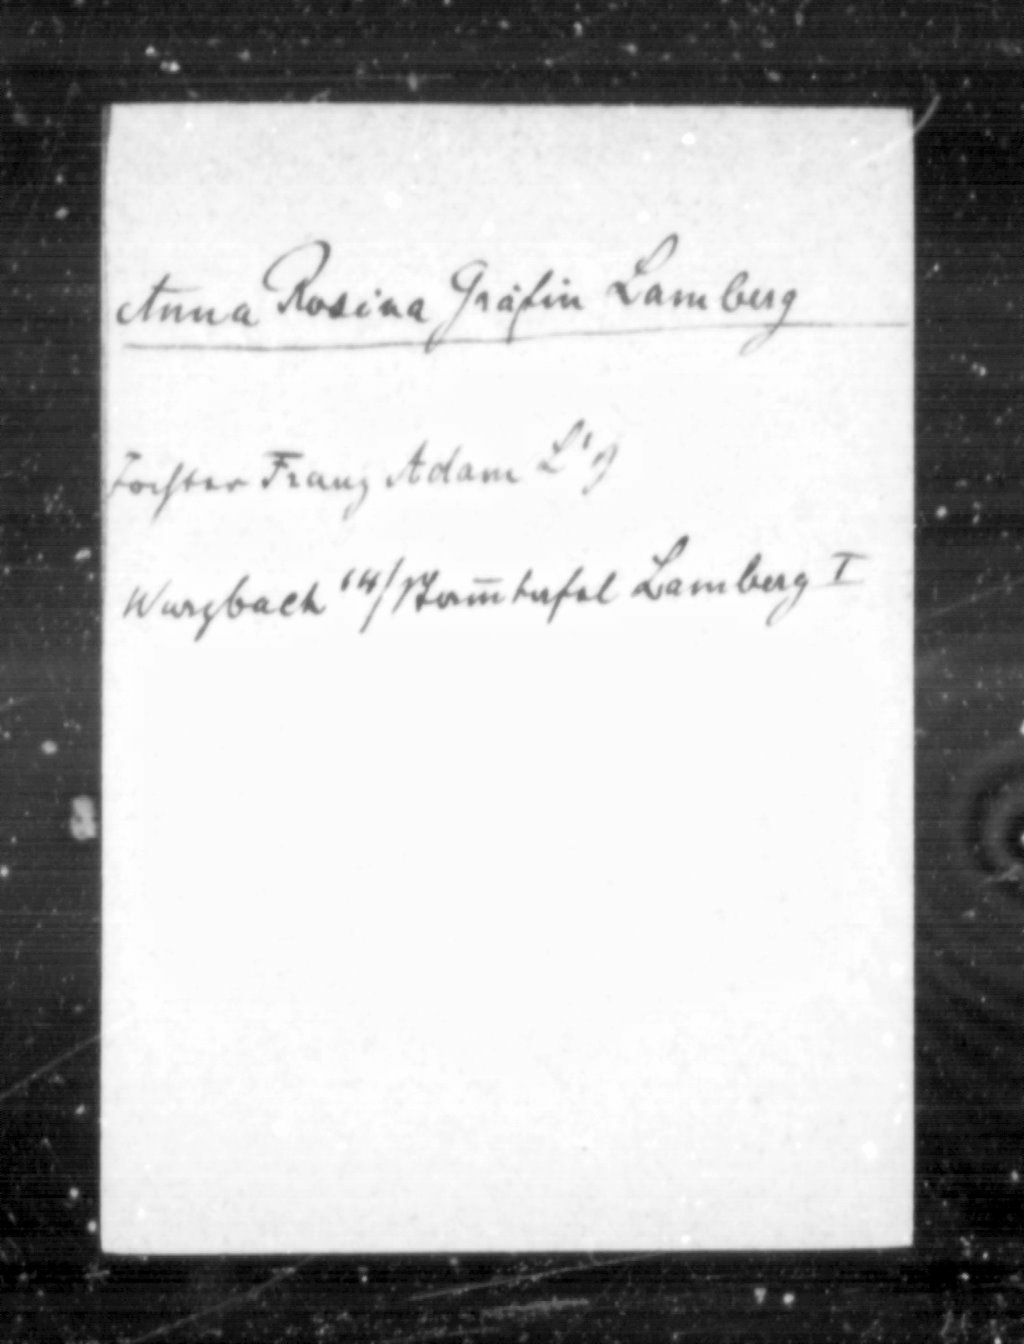 Anna Rosina Gräfin Lamberg
Tochter Franz Adam L'g
Wurzbach 14/Stam̄tafel Lamberg I